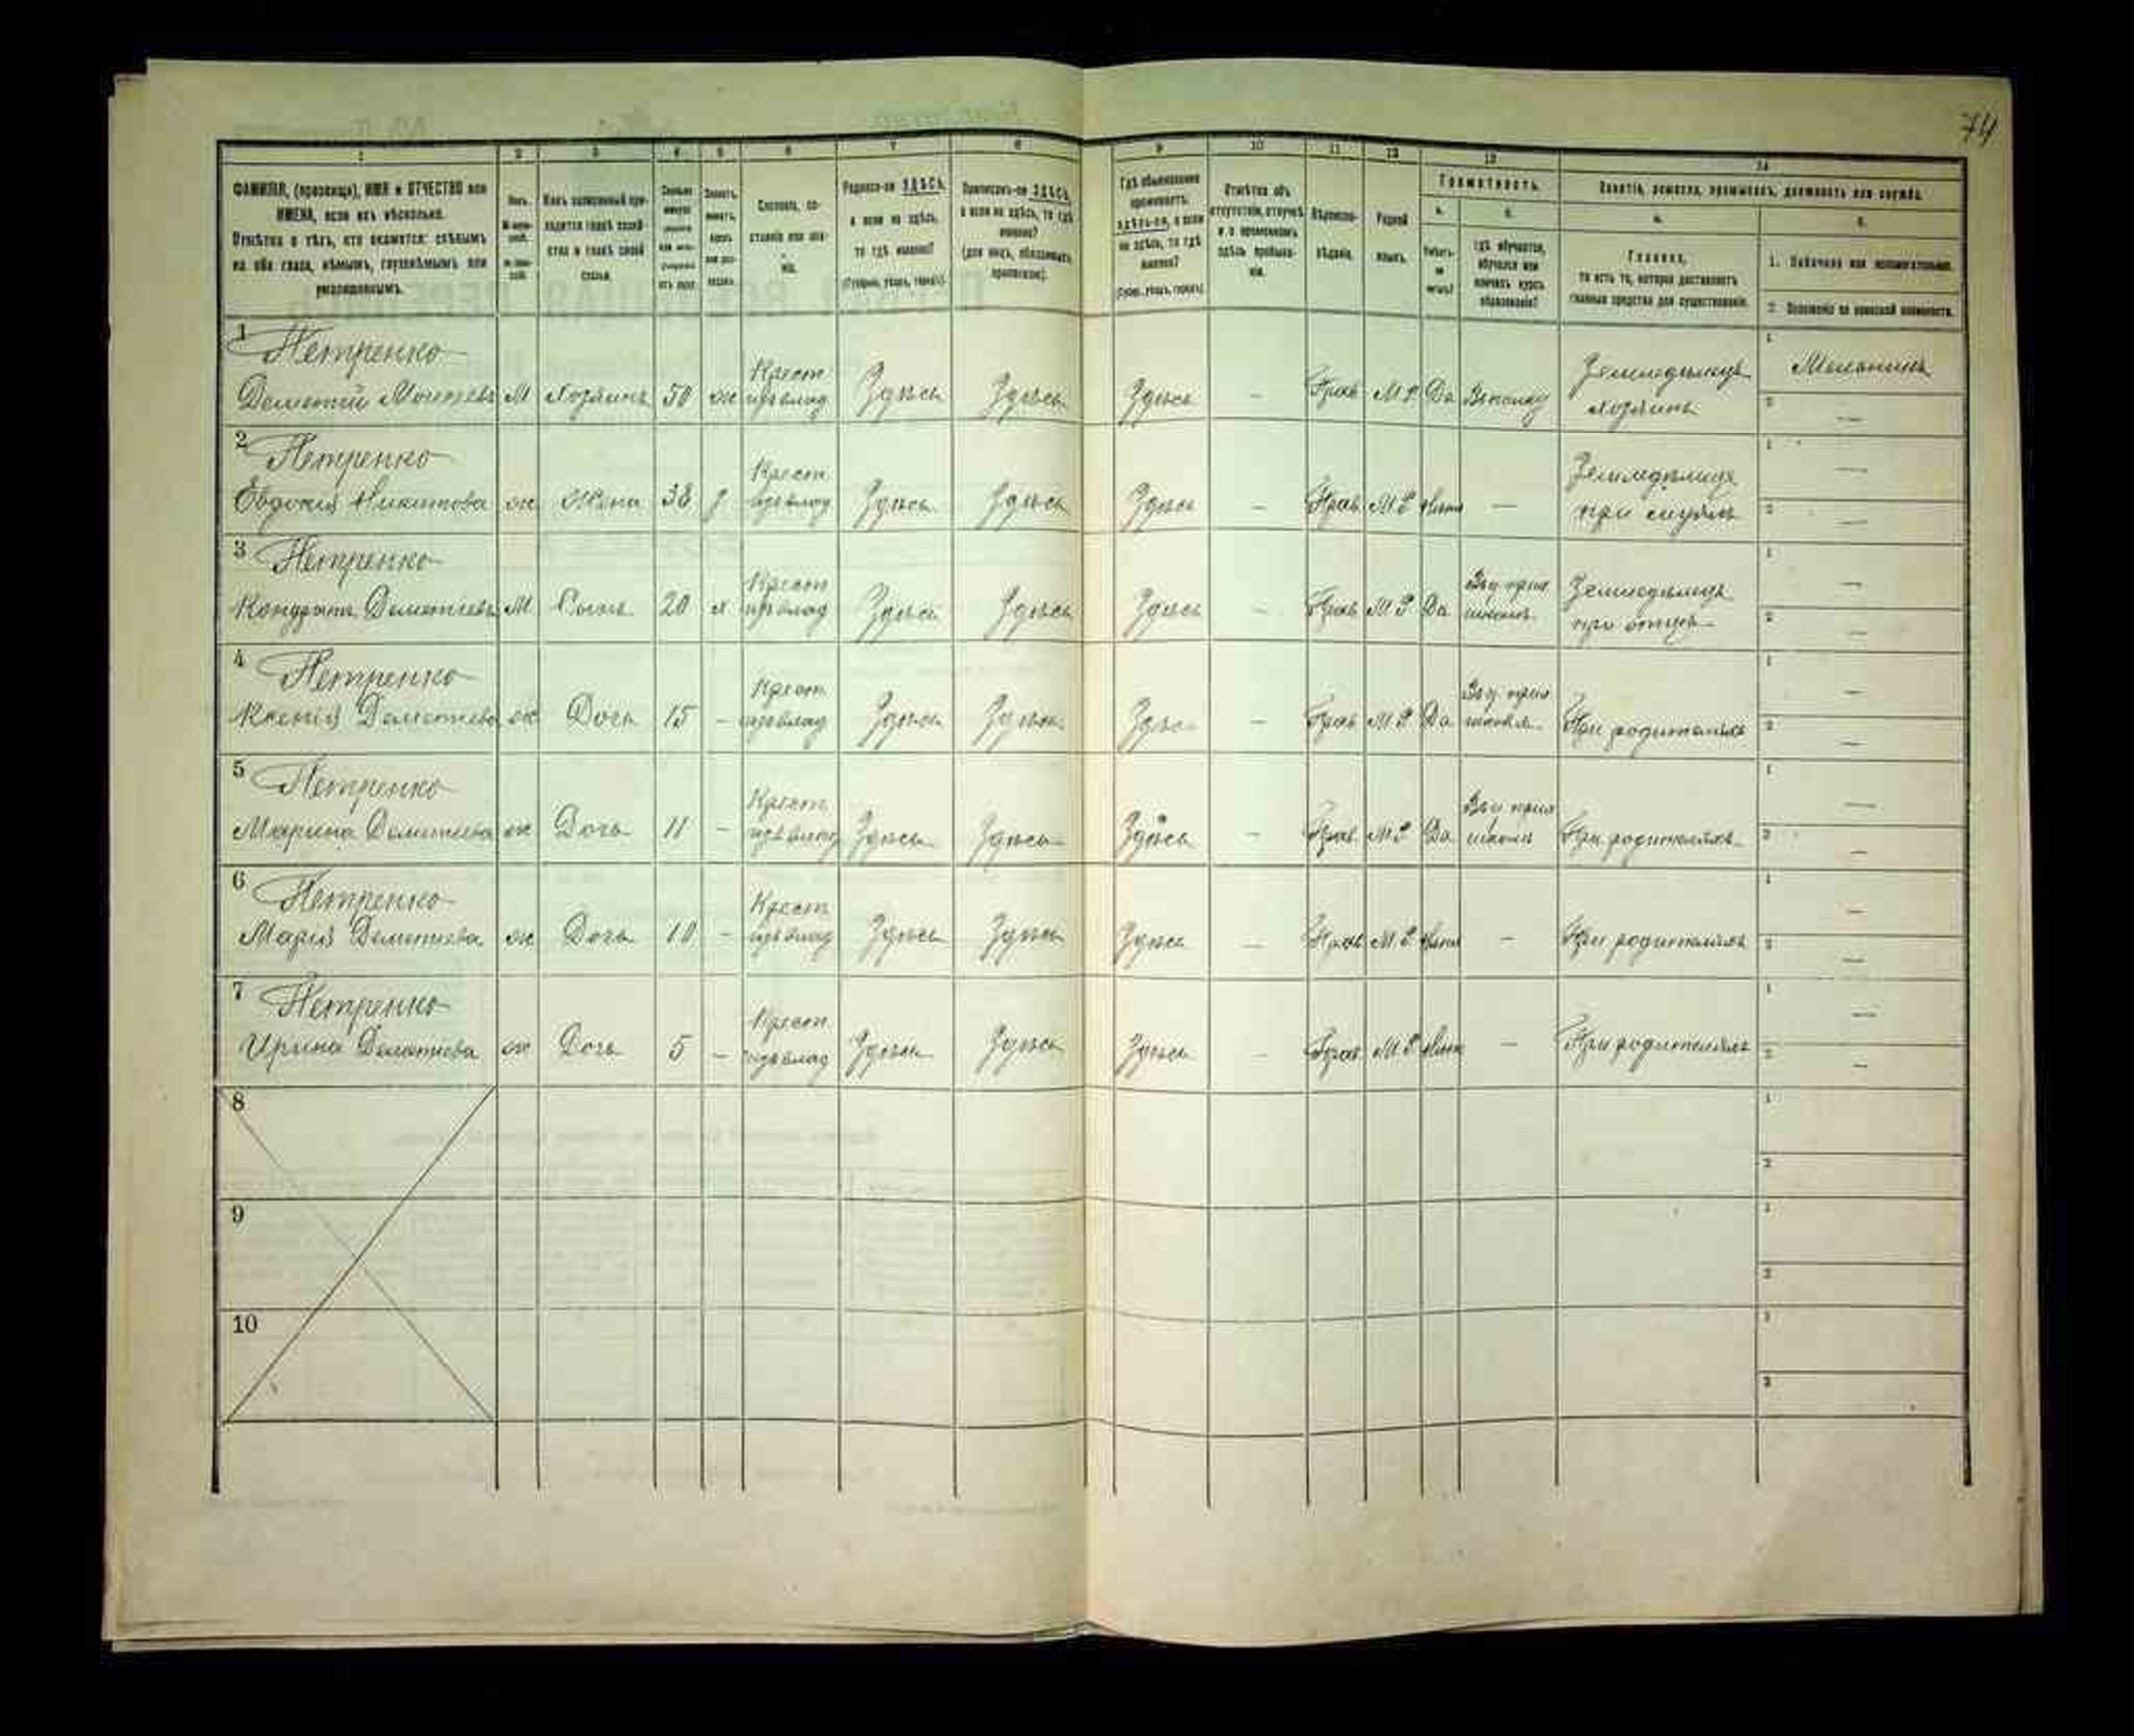 74
1 2 3 4 5 6 7 8 9 10 11 12 13 14
ФАМИЛІЯ, (прозвище), ИМЯ и ОТЧЕСТВО или
ИМЕНА, если ихъ нѣсколько.
Отмѣтка о тѣхъ, кто окажется: слѣпымъ
на оба глаза, нѣмымъ, глухонѣмымъ или
умалишеннымъ.
Полъ.
Какъ записанный при-
ходится главѣ хозяй-
ства и главѣ своей
семьи.
Сословіе, со-
стояніе или зва-
ніе.
Родился-ли ЗДѢСЬ,
а если не здѣсь,
то гдѣ именно?
(Губернія, уѣздъ, городъ).
Приписанъ-ли ЗДѢСЬ,
а если не здѣсь, то гдѣ
именно?
(для лицъ, обязанныхъ
припискою).
Гдѣ обыкновенно
проживаетъ:
здѣсь-ли, а если
не здѣсь, то гдѣ
именно?
(Губер., уѣздъ, городъ).
Отмѣтка объ
отсутствіи, отлучкѣ
и о временномъ
здѣсь пребыва-
ніи.
Вѣроиспо-
вѣданіе.
Родной
языкъ.
Грамотность.
а. б.
Умѣетъ-
ли
читать?
гдѣ обучается,
обучался или
кончилъ курсъ
образованія?
Занятіе, ремесло, промыселъ, должность или служба.
а. б.
Главное,
то есть то, которое доставляетъ
главныя средства для существованія.
1. Побочное или вспомогательное.
2. Положеніе по воинской повинности.
1 Петренко
Крест
Земледѣлецъ
1
Мельникъ
Дементій Моисеевъ М Хозяинъ 50 ж изъ влад Здѣсь Здѣсь Здѣсь — Прав М Р Да хозяинъ 2 —
2 Петренко
Крест
1 —
Евдокія Никитова ж Жена 38 з изъ влад Здѣсь Здѣсь Здѣсь — Прав М Р Нѣтъ — при мужѣ 2 —
3 Петренко
Крест
1 —
Кондратъ Дементіевъ М Сынъ 20 х изъ влад Здѣсь Здѣсь Здѣсь — Прав М Р Да при отцѣ 2 —
4 Петренко
Крест
1 —
Ксенія Дементіева ж Дочь 15 — изъ влад Здѣсь Здѣсь Здѣсь — Прав М Р Да При родителяхъ 2 —
5 Петренко
Крест
1 —
Марина Дементіева ж Дочь 11 — изъ влад Здѣсь Здѣсь Здѣсь — Прав М Р Да При родителяхъ 2 —
6 Петренко
Крест
1 —
Марія Дементіева ж Дочь 10 — изъ влад Здѣсь Здѣсь Здѣсь — Прав М Р Нѣтъ — При родителяхъ 2 —
7 Петренко
Крест
1 —
Ирина Дементіева ж Дочь 5 — изъ влад Здѣсь Здѣсь Здѣсь — Прав М Р Нѣтъ — При родителяхъ 2 —
8 1
2
9 1
2
10 1
2